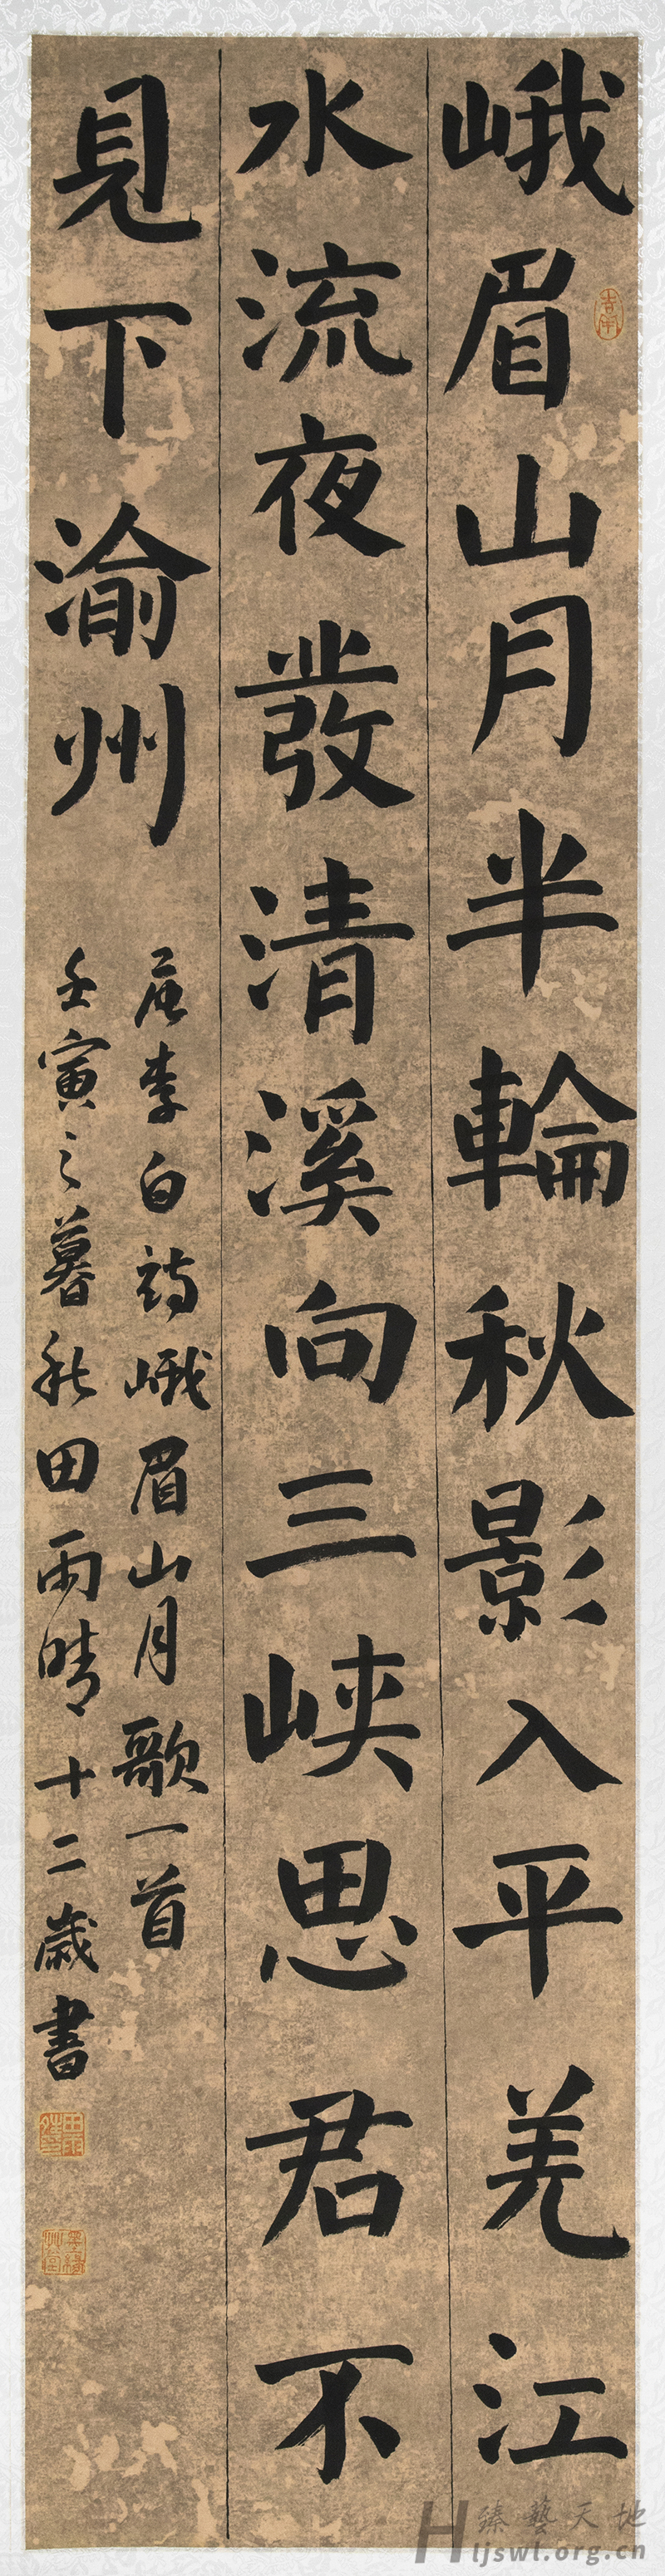 峨眉山月半輪秋影入平羌江
水流夜發清溪向三峡思君不
見下渝州
唐李白詩峨眉山月歌一首
壬寅之暮秋田雨晴十二歲書
臻藝天地
Hljswl.org.cn